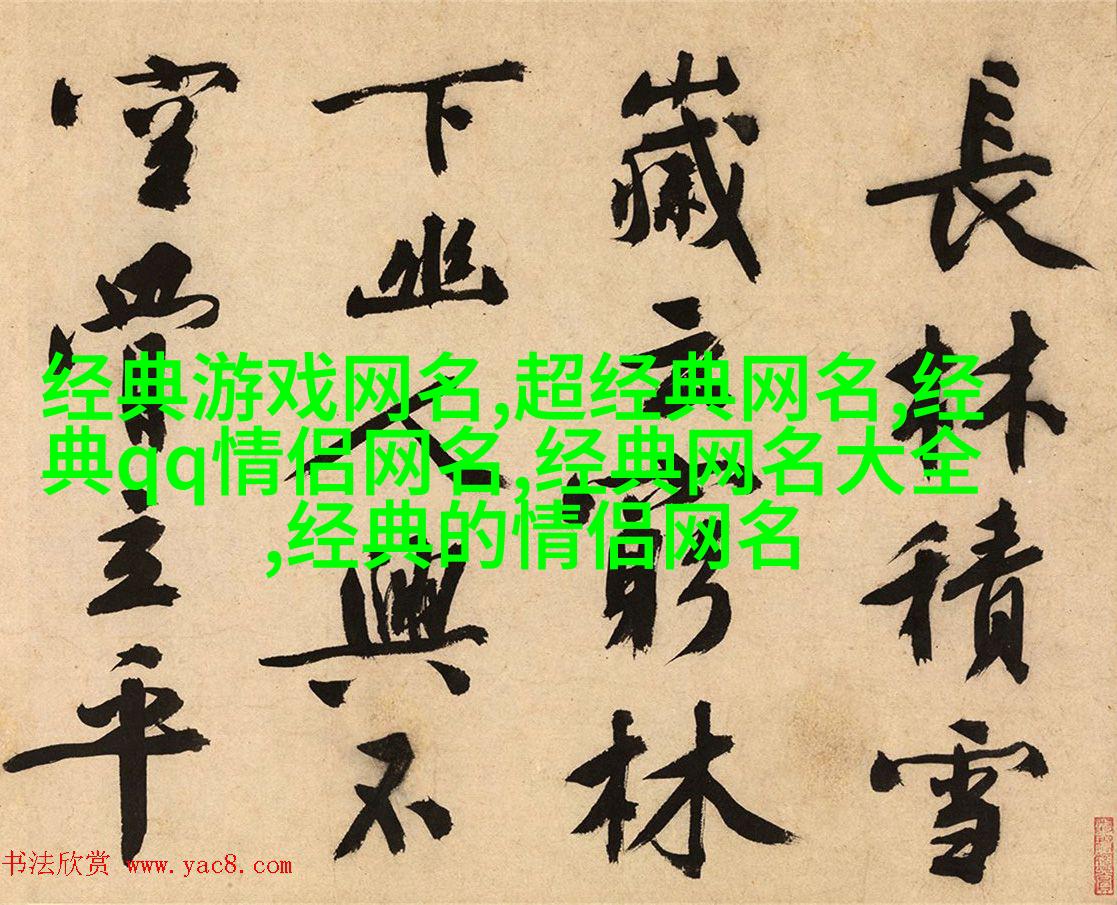 長林積雪
歲云窮林
下幽人興不
空立平
经典游戏网名,超经典网名,经
典qq情侣网名,经典网名大全
,经典的情侣网名
书法欣赏 www.yac8.com